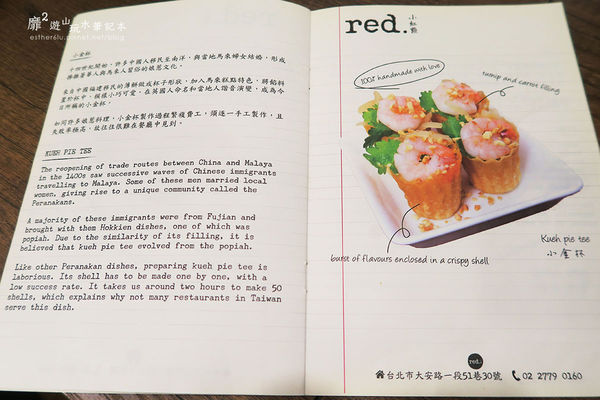 靡²遊山玩水筆記本
esther6lu.pixnet.net/blog
小金杯
十四世紀開始，許多中國人移民至南洋，與當地馬來婦女結婚，形成
揉雜著華人與馬來人習俗的娘惹文化。
來自中國福建移民的薄餅做成杯子形狀，加入馬來糕點特色，將餡料
置於杯中，模樣小巧可愛，在英國人命名和當地人諧音演變，成為今
日所稱的小金杯。
如同許多娘惹料理，小金杯製作過程繁複費工，須逐一手工製作，且
失敗率極高，故往往很難在餐廳中見到。
KUEH PIE TEE
The reopening of trade routes between China and Malaya
in the 1400s saw successive waves of Chinese immigrants
travelling to Malaya. Some of these men married local
women, giving rise to a unique community called the
Peranakans.
A majority of these immigrants were from Fujian and
brought with them Hokkien dishes, one of which was
popiah. Due to the similarity of its filling, it is
believed that kueh pie tee evolved from the popiah.
Like other Peranakan dishes, preparing kueh pie tee is
laborious. Its shell has to be made one by one, with a
low success rate. It takes us around two hours to make 50
shells, which explains why not many restaurants in Taiwan
serve this dish.
red.
小紅點
100% handmade with love
turnip and carrot filling
burst of flavours enclosed in a crispy shell
Kueh pie tee
小金杯
red.
台北市大安路一段51巷30號 02 2779 0160